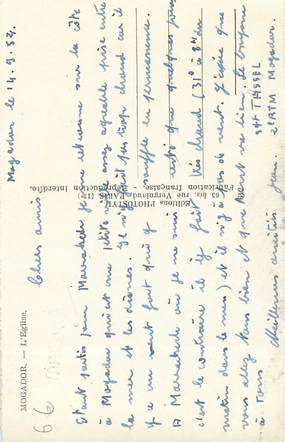 Mogador le 14.9.52.
Chers amis
Etant partis pour Marrakech je me retrouve sur la côte
à Mogador qui est une petite ville assez agréable prise entre
la mer et les dunes. Il n'y fait pas trop chaud car il
y a un vent fort qui y souffle en permanence.
A Marrakech où je ne suis resté que quelques jours
c'est le contraire il y fait très chaud (31° à 8h du
matin dans le mess) et il n'y a pas de vent. J'espère que
vous allez tous bien et que tout va bien. Le bonjour
à tous
Meilleures amitiés Jean.
2e RTM Mogador.
MOGADOR. — L'Eglise.
Editions PHOTOSTYL
63 bis, rue Vergniaud, PARIS (13e)
Fabrication française. - Reproduction Interdite.
66